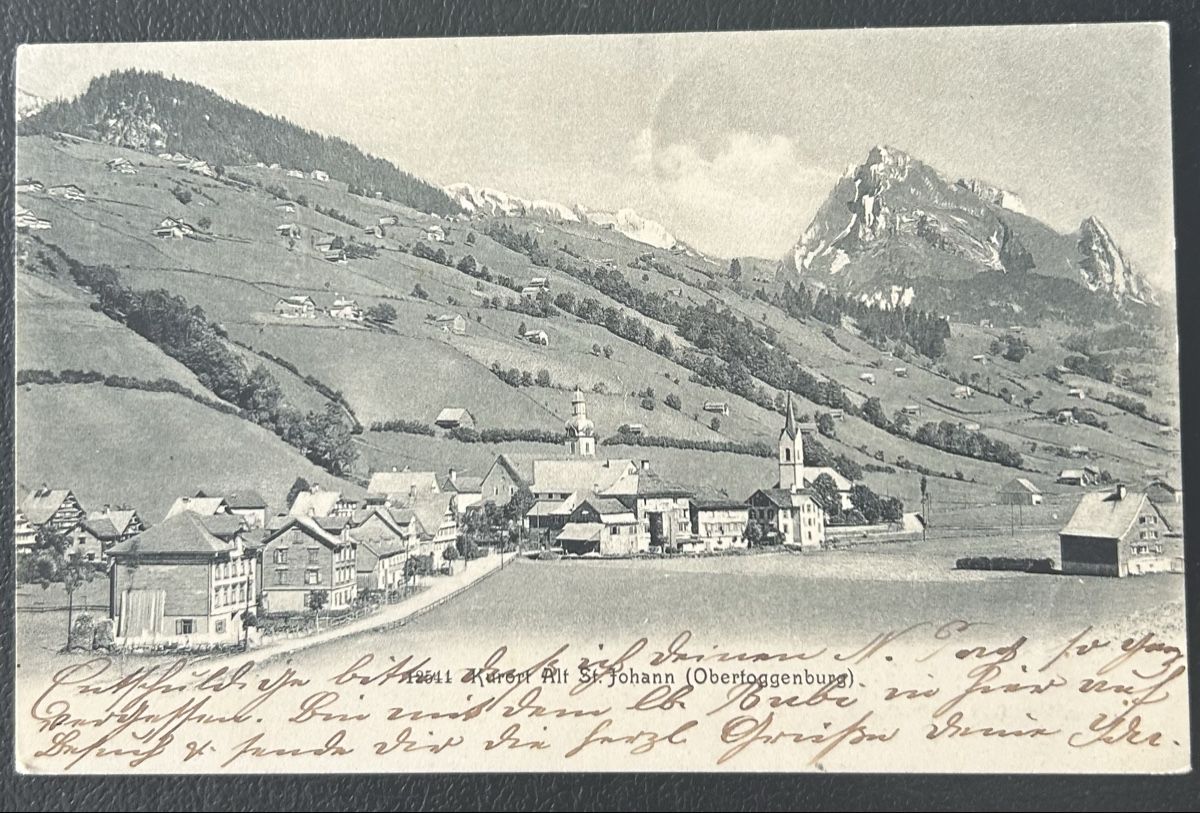 12541 Kurort Alt St. Johann (Obertoggenburg)
Entschuldige bitte, daß ich deinen N. so ganz
vergessen. Bin mit dem lb. Rubi in hier auf
Besuch & sende dir die herzl Grüße deine